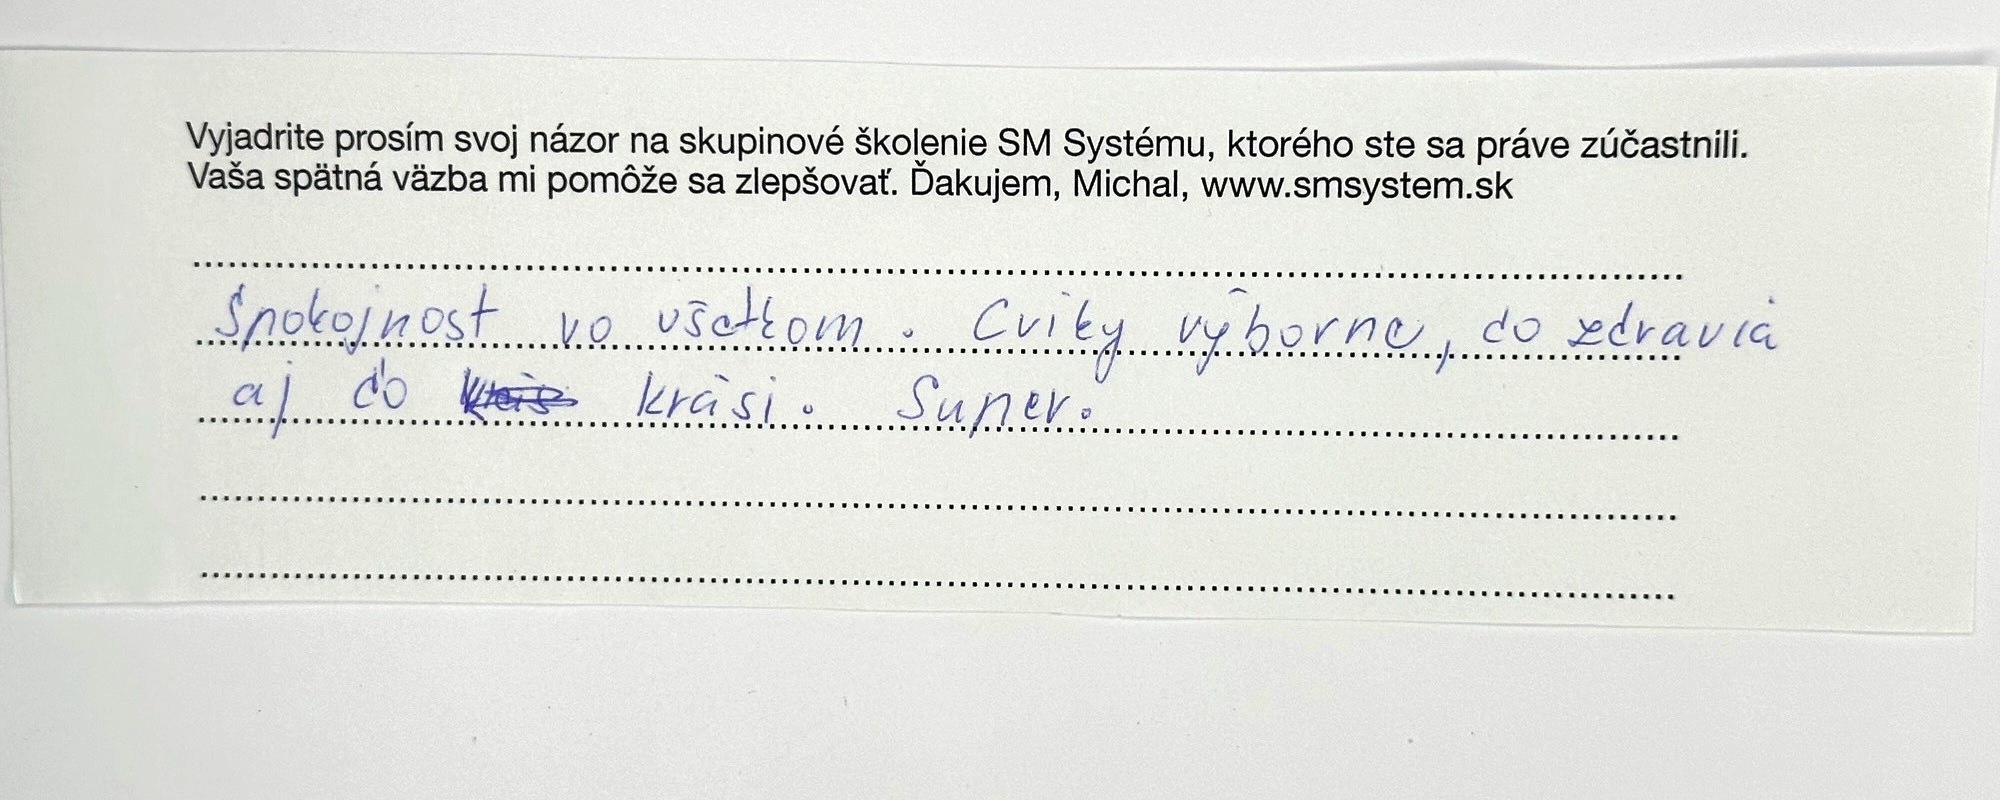 Vyjadrite prosím svoj názor na skupinové školenie SM Systému, ktorého ste sa práve zúčastnili.
Vaša spätná väzba mi pomôže sa zlepšovať. Ďakujem, Michal, www.smsystem.sk
Spokojnost vo všetkom. Cviky výborne, do zdravia
aj do krási. Super.